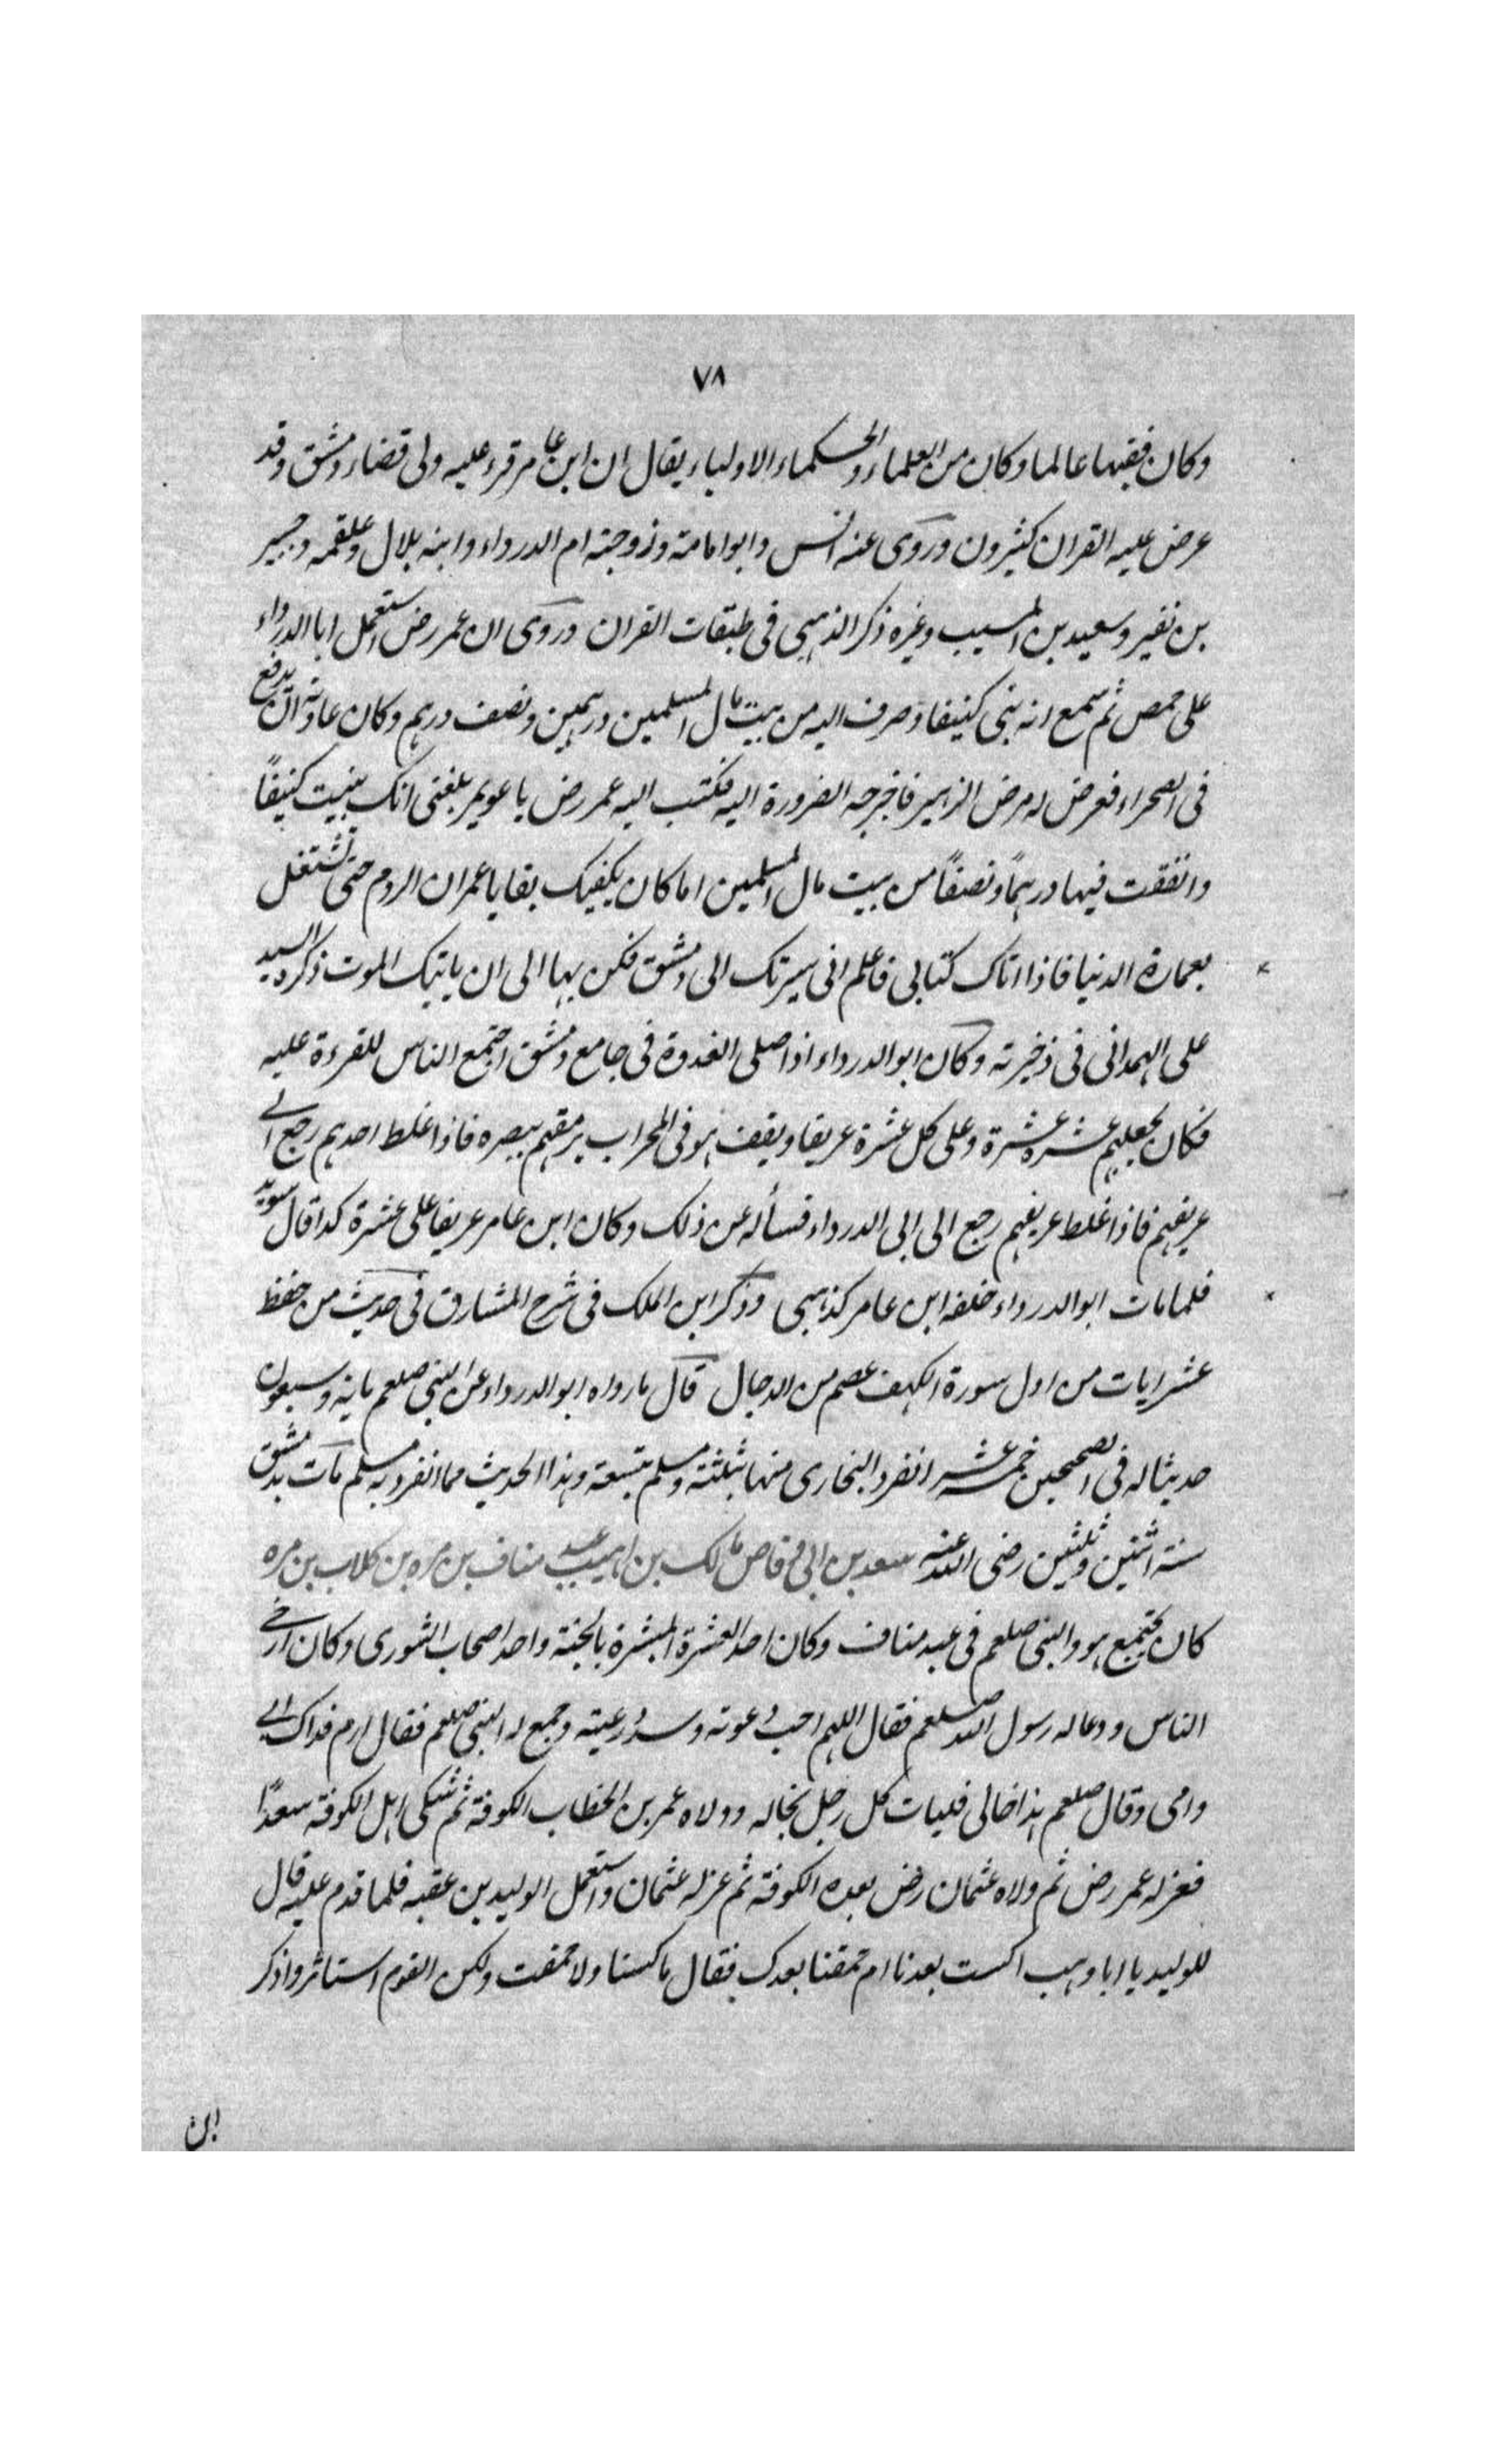 ٧٨
وكان فقيها عالما وكان من العلماء والحكماء الاولياء يقال ان ابن عامر قرء عليه ولى قضاء دمشق وقد
عرض عليه القران كثيرون وروى عنه انس وابو امامة وزوجته ام الدرداء وابنه بلال وعلقمه وجبير
بن نفير وسعيد بن المسيب وغيره ذكر الذهبى فى طبقات القران وروى ان عمر رض استعمل ابا الدرداء
على حمص ثم سمع انه بنى كنيفا وصرف اليه من بيت مال المسلمين درهمين ونصف درهم وكان عادته ان يدفع
فى الصحراء فعرض له مرض الزهير فاخرجه الضرورة اليه فكتب اليه عمر رض يا عويمر بلغنى انك بنيت كنيفًا
وانفقت فيها درهمًا ونصفًا من بيت مال المسلمين اما كان يكفيك بقايا عمران الروم حتى تشتغل
بعمارة الدنيا فاذا اتاك كتابى فاعلم انى سيرتك الى دمشق فكن بها الى ان ياتيك الموت ذكره السيد
على الهمدانى فى ذخيرته وكان ابو الدرداء اذا صلى الغدوة فى جامع دمشق اجتمع الناس للقرءة عليه
فكان يجعلهم عشره عشرة وعلى كل عشرة عريفا ويقف هو فى المحراب يرمقهم ببصره فاذا غلط احدهم رجع الى
عريفهم فاذا غلط عريفهم رجع الى ابى الدرداء فسأله عن ذلك وكان ابن عامر عريفا على عشرة كذا قال سويد
فلما مات ابو الدرداء خلفه ابن عامر كذهبى وذكر ابن الملك فى شرح المشارق فى حديث من حفظ
عشر ايات من اول سورة الكهف عصم من الدجال قال ما رواه ابو الدرداء عن النبى صلعم ماية وسبعون
حديثا له فى الصحيحين خمسة عشر انفرد البخارى منها بثلثة ومسلم بتسعة وهذا الحديث مما انفرد به مسلم مات بدمشق
سنة اثنين وثلثين رضى الله عنه سعد بن ابى وقاص مالك بن اهيب عبد مناف بن مره بن كلاب بن مره
كان يجتمع هو والنبى صلعم فى عبد مناف وكان احد العشرة المبشرة بالجنة واحد اصحاب الشورى وكان ارمى
الناس ودعا له رسول الله صلعم فقال اللهم اجب دعوته وسدد رميته وجمع له النبى صلعم فقال ارم فداك ابى
وامى وقال صلعم هذا خالى فليات كل رجل بخاله وولاه عمر بن الخطاب الكوفة ثم شكى اهل الكوفة سعدًا
فعزله عمر رض ثم ولاه عثمان رض بعده الكوفة ثم عزله عثمان واستعمل الوليد بن عقبه فلما قدم عليه قال
للوليد يا ابا وهب اكست بعدنا ام حمقنا بعدك فقال ما كسنا ولا حمقت ولكن القوم استاثروا ذكر
ابن